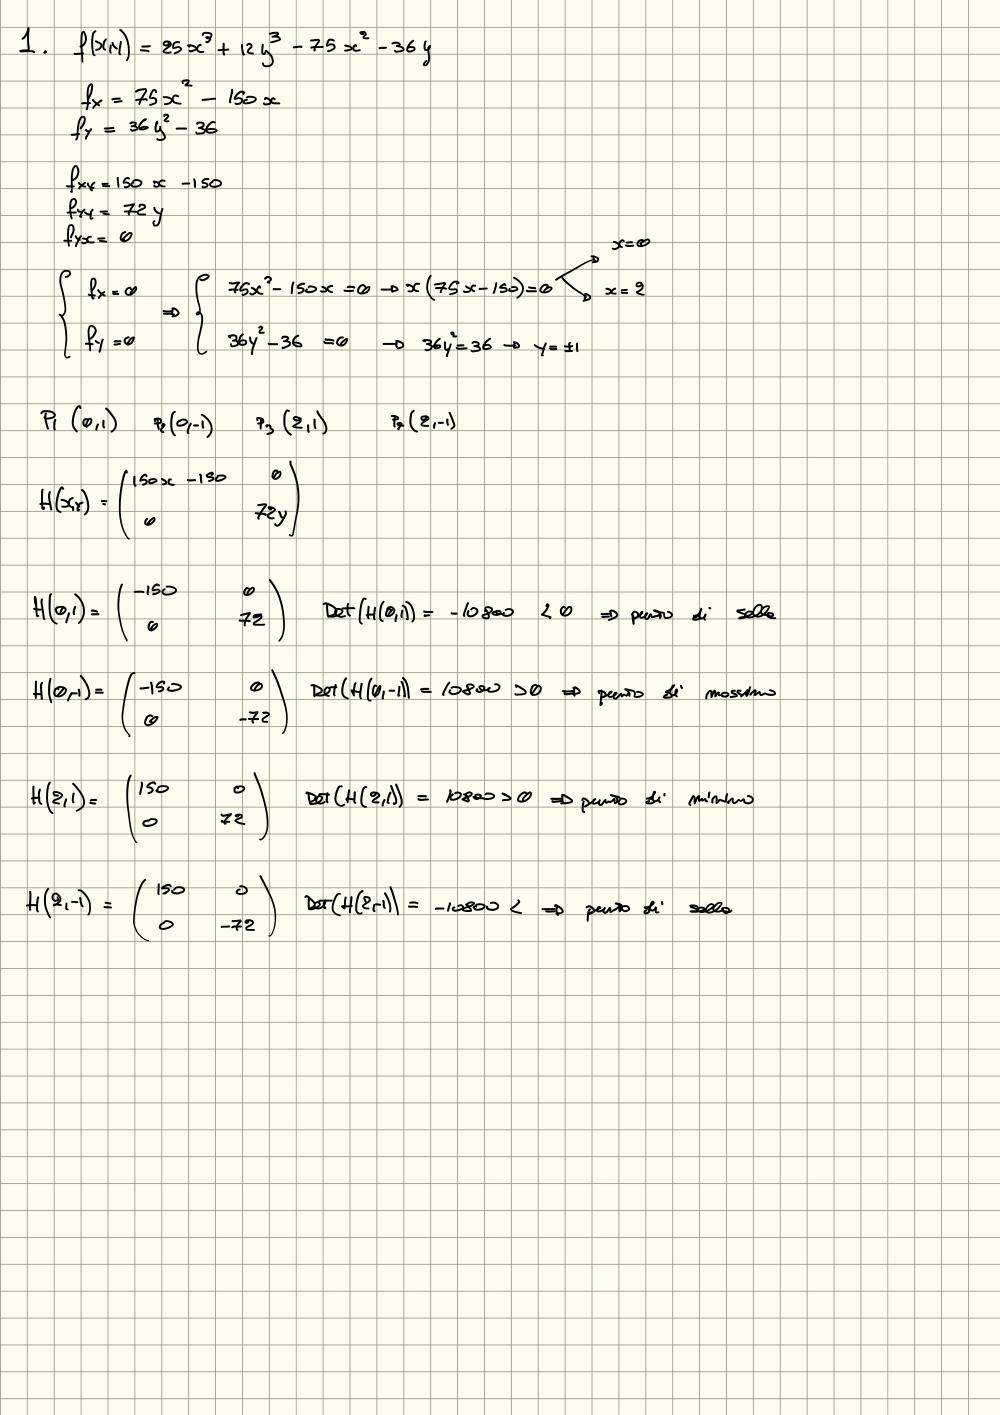 1. f(x,y) = 25x³ + 12y³ - 75x² - 36y
fx = 75x² - 150x
fy = 36y² - 36
fxx = 150x - 150
fyy = 72y
fyx = 0
x=0
{ fx = 0 ⇒ { 75x² - 150x = 0 → x(75x - 150) = 0
x = 2
fy = 0 36y² - 36 = 0 → 36y² = 36 → y = ±1
P1 (0,1) P2 (0,-1) P3 (2,1) P4 (2,-1)
H(x,y) = ( 150x - 150 0
0 72y )
H(0,1) = ( -150 0
0 72 ) Det(H(0,1)) = -10800 < 0 ⇒ punto di sella
H(0,-1) = ( -150 0
0 -72 ) Det(H(0,-1)) = 10800 > 0 ⇒ punto di massimo
H(2,1) = ( 150 0
0 72 ) Det(H(2,1)) = 10800 > 0 ⇒ punto di minimo
H(2,-1) = ( 150 0
0 -72 ) Det(H(2,-1)) = -10800 < ⇒ punto di sella